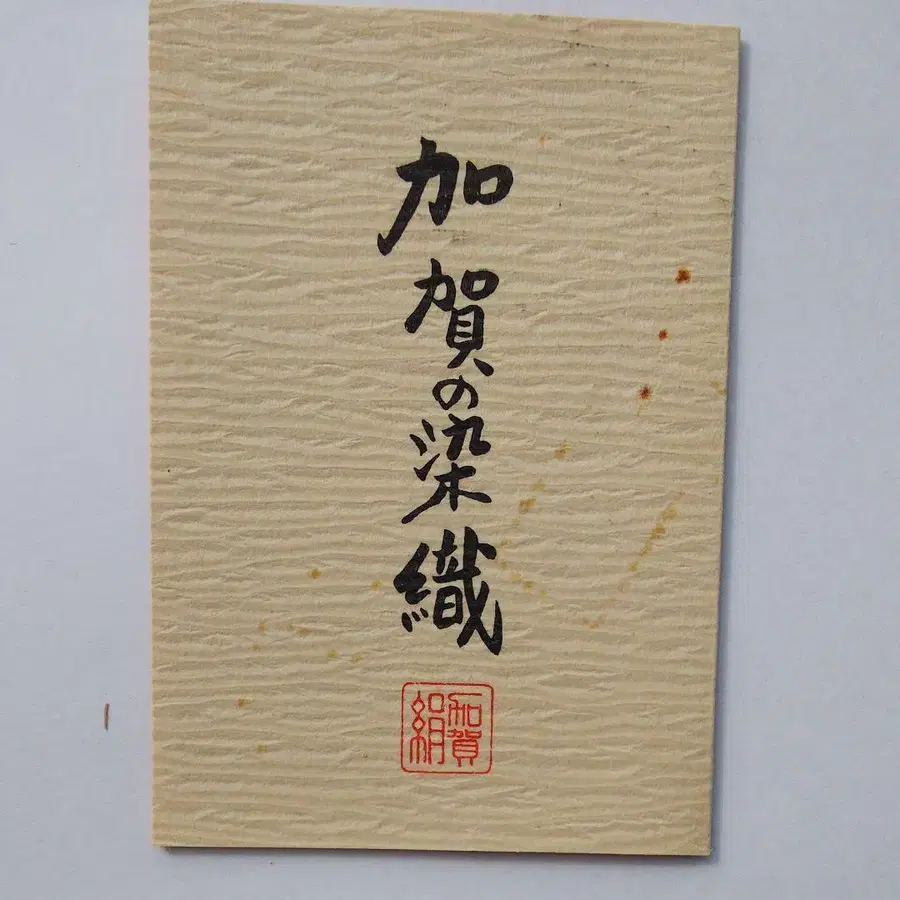 加賀の染織
加賀
絹